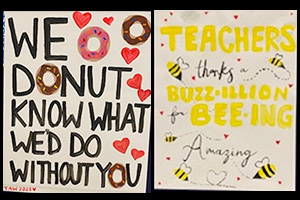 WE
DONUT
KNOW WHAT
WE'D DO
WITHOUT YOU
TEACHERS
thanks a
BUZZ-ILLION
for BEE-ING
Amazing